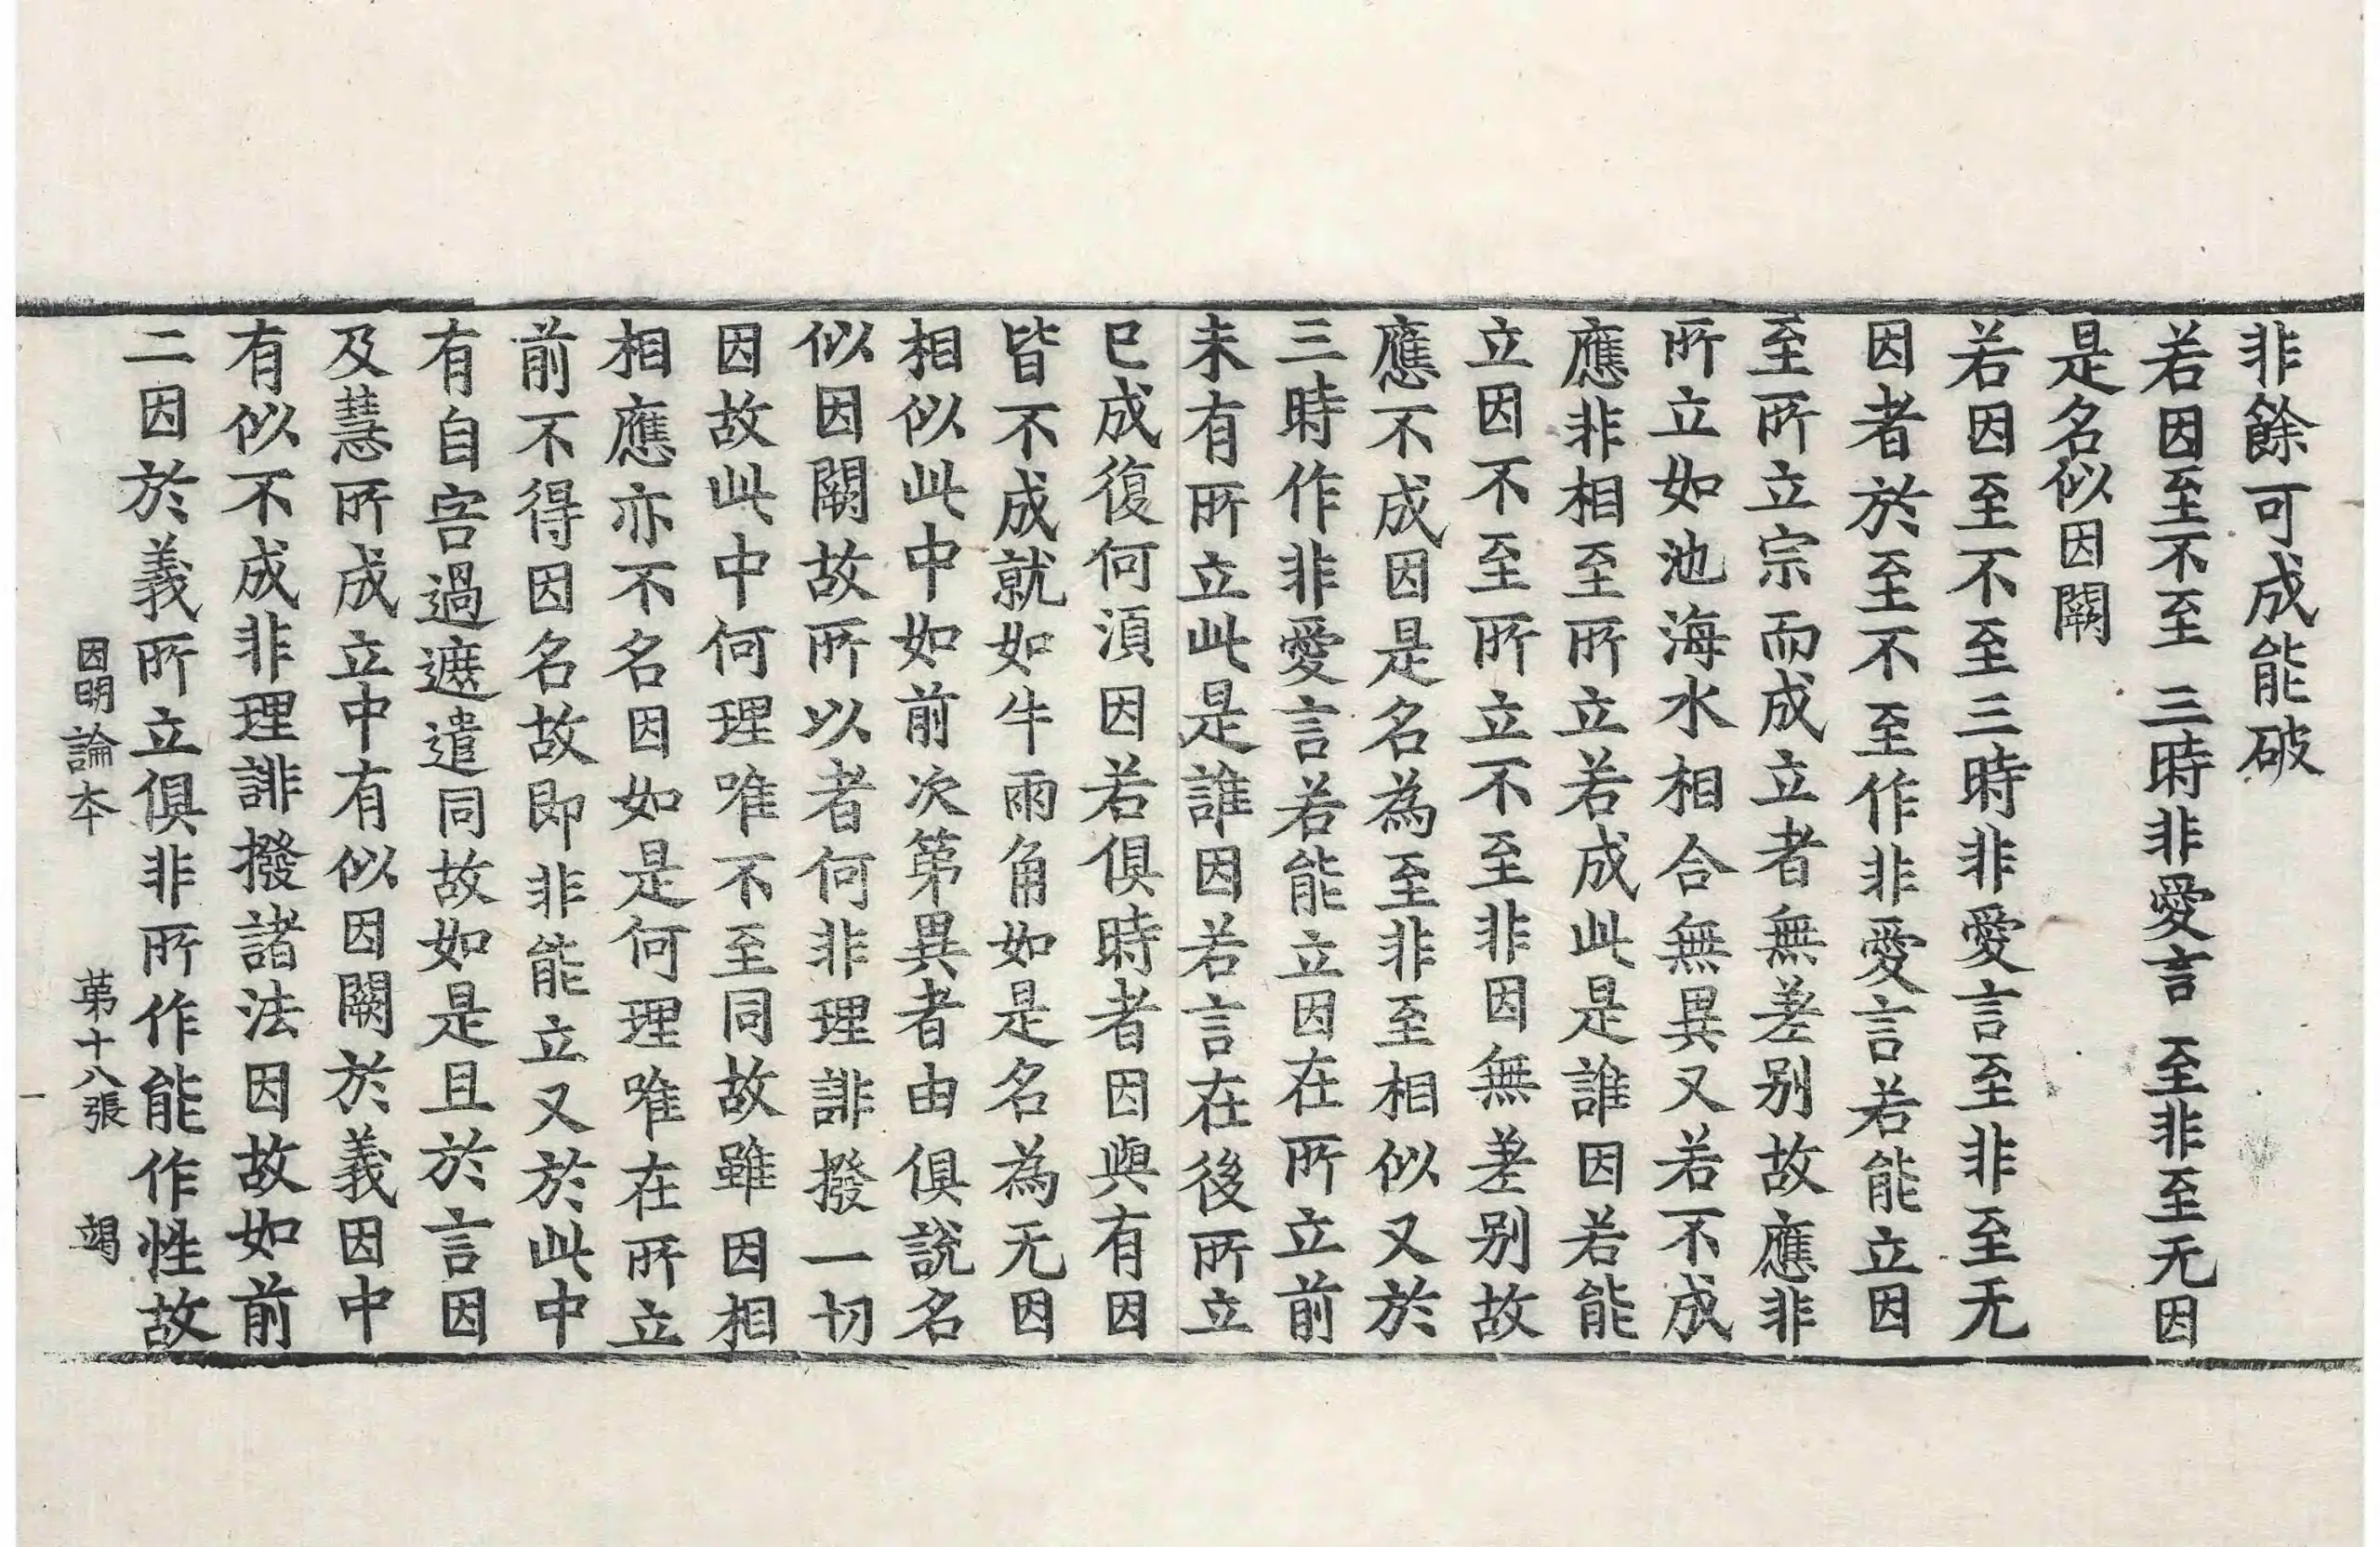 非餘可成能破
若因至不至　三時非愛言　至非至无因
是名似因闕
若因至不至三時非愛言至非至无
因者於至不至作非愛言若能立因
至所立宗而成立者無差别故應非
所立如池海水相合無異又若不成
應非相至所立若成此是誰因若能
立因不至所立不至非因無差别故
應不成因是名為至非至相似又於
三時作非愛言若能立因在所立前
未有所立此是誰因若言在後所立
已成復何湏因若俱時者因與有因
皆不成就如牛兩角如是名為无因
相似此中如前次第異者由俱說名
似因闕故所以者何非理誹撥一切
因故此中何理唯不至同故雖因相
相應亦不名因如是何理唯在所立
前不得因名故即非能立又於此中
有自害過遮遣同故如是且於言因
及慧所成立中有似因闕於義因中
有似不成非理誹撥諸法因故如前
二因於義所立俱非所作能作性故
因明論本　第十八張　竭